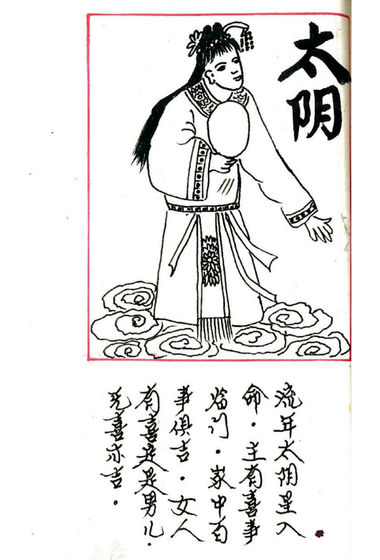 太阴
流年太阴星入
命·主有喜事
临门·家中百
事俱吉·女人
有喜定是男儿·
无喜亦吉·